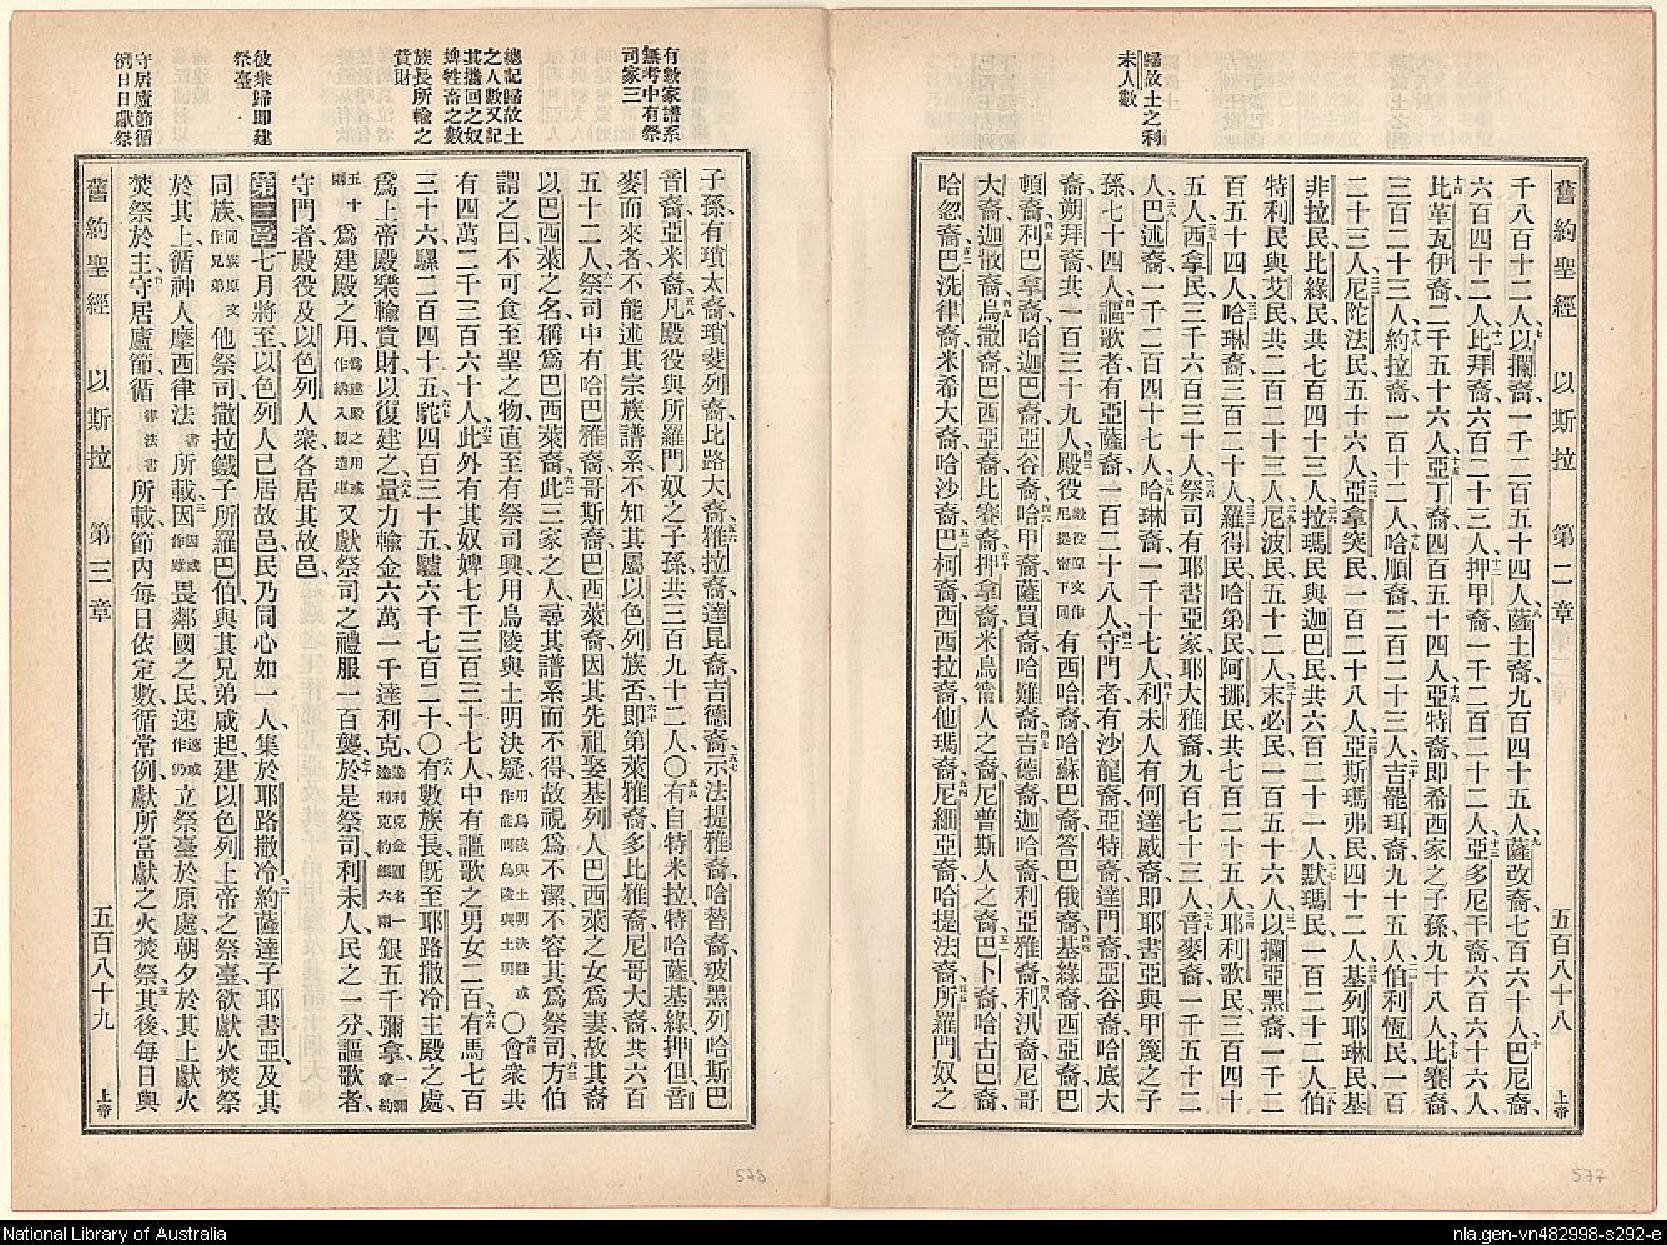 舊約聖經　以斯拉　第二章　五百八十八　上帝
歸故土之利
未人數
千八百十二人、七以攔裔、一千二百五十四人、八薩土裔、九百四十五人、九薩改裔、七百六十人、十巴尼裔、
六百四十二人、十一比拜裔、六百二十三人、十二押甲裔、一千二百二十二人、十三亞多尼干裔、六百六十六人、
十四比革瓦伊裔、二千五十六人、十五亞丁裔、四百五十四人、十六亞特裔、即希西家之子孫、九十八人、十七比賽裔、
三百二十三人、十八約拉裔、一百十二人、十九哈順裔、二百二十三人、二十吉罷珥裔、九十五人、二一伯利恆民、一百
二十三人、二二尼陀法民、五十六人、二三亞拿突民、一百二十八人、二四亞斯瑪弗民、四十二人、二五基列耶琳民、基
非拉民、比錄民、共七百四十三人、二六拉瑪民與迦巴民、共六百二十一人、二七默瑪民、一百二十二人、二八伯
特利民與艾民、共二百二十三人、二九尼波民、五十二人、三十末必民、一百五十六人、三一以攔亞黑裔、一千二
百五十四人、三二哈琳裔、三百二十人、三三羅得民、哈第民、阿挪民、共七百二十五人、三四耶利歌民、三百四十
五人、三五西拿民、三千六百三十人、三六祭司有耶書亞家、耶大雅裔、九百七十三人、三七音麥裔、一千五十二
人、三八巴述裔、一千二百四十七人、三九哈琳裔、一千十七人、四十利未人有何達威裔、即耶書亞與甲篾之子
孫、七十四人、四一謳歌者有亞薩裔、一百二十八人、四二守門者有沙龍裔、亞特裔、達門裔、亞谷裔、哈底大
裔、朔拜裔、共一百三十九人、四三殿役殿役原文作尼提甯下同有西哈裔、哈蘇巴裔、答巴俄裔、四四基綠裔、西亞裔、巴
頓裔、四五利巴拿裔、哈迦巴裔、亞谷裔、四六哈甲裔、薩買裔、哈難裔、四七吉德裔、迦哈裔、利亞雅裔、四八利汛裔、尼哥
大裔、迦散裔、四九烏撒裔、巴西亞裔、比賽裔、五十押拿裔、米烏甯人之裔、尼普斯人之裔、五一巴卜裔、哈古巴裔、
哈忽裔、五二巴洗律裔、米希大裔、哈沙裔、五三巴柯裔、西西拉裔、他瑪裔、五四尼細亞裔、哈提法裔、五五所羅門奴之
有數家譜系
無考中有祭
司家三
總記歸故土
之人數又記
其攜回之奴
婢牲畜之數
族長所輸之
貲財
彼衆歸即建
祭臺
守居廬節循
例日日獻祭
子孫、有瑣太裔、瑣斐列裔、比路大裔、五六雅拉裔、達昆裔、吉德裔、五七示法提雅裔、哈替裔、玻黑列哈斯巴
音裔、亞米裔、五八凡殿役與所羅門奴之子孫、共三百九十二人、〇五九有自特米拉、特哈薩、基綠押但、音
麥而來者、不能述其宗族譜系、不知其屬以色列族否、六十即第萊雅裔、多比雅裔、尼哥大裔、共六百
五十二人、六一祭司中有哈巴雅裔、哥斯裔、巴西萊裔、因其先祖娶基列人巴西萊之女爲妻、故其裔
以巴西萊之名、稱爲巴西萊裔、六二此三家之人、尋其譜系而不得、故視爲不潔、不容其爲祭司、六三方伯
謂之曰、不可食至聖之物、直至有祭司興、用烏陵與土明決疑、用烏陵與土明決疑或作能問烏陵與土明〇六四會衆共
有四萬二千三百六十人、六五此外有其奴婢七千三百三十七人、中有謳歌之男女二百、六六有馬七百
三十六、騾二百四十五、六七駝四百三十五、驢六千七百二十、〇六八有數族長、既至耶路撒冷主殿之處、
爲上帝殿樂輸貲財、以復建之、六九量力輸金六萬一千達利克、達利克金圜名一達利克約銀六兩銀五千彌拿、一彌拿約
五十兩爲建殿之用、爲建殿之用或作納入製造庫又獻祭司之禮服一百襲、七十於是祭司、利未人、民之一分、謳歌者、
守門者、殿役、及以色列人衆、各居其故邑、
第三章 一七月將至、以色列人已居故邑、民乃同心如一人、集於耶路撒冷、二約薩達子耶書亞、及其
同族、同族原文作兄弟他祭司、撒拉鐵子所羅巴伯、與其兄弟咸起、建以色列上帝之祭臺、欲獻火焚祭
於其上、循神人摩西律法書所載、三因因或作雖畏鄰國之民、速速或作仍立祭臺於原處、朝夕於其上獻火
焚祭於主、四守居廬節、循律法書所載、節內每日依定數循常例、獻所當獻之火焚祭、五其後每日與
舊約聖經　以斯拉　第三章　五百八十九　上帝
577
578
National Library of Australia
nla.gen-vn482998-s292-e